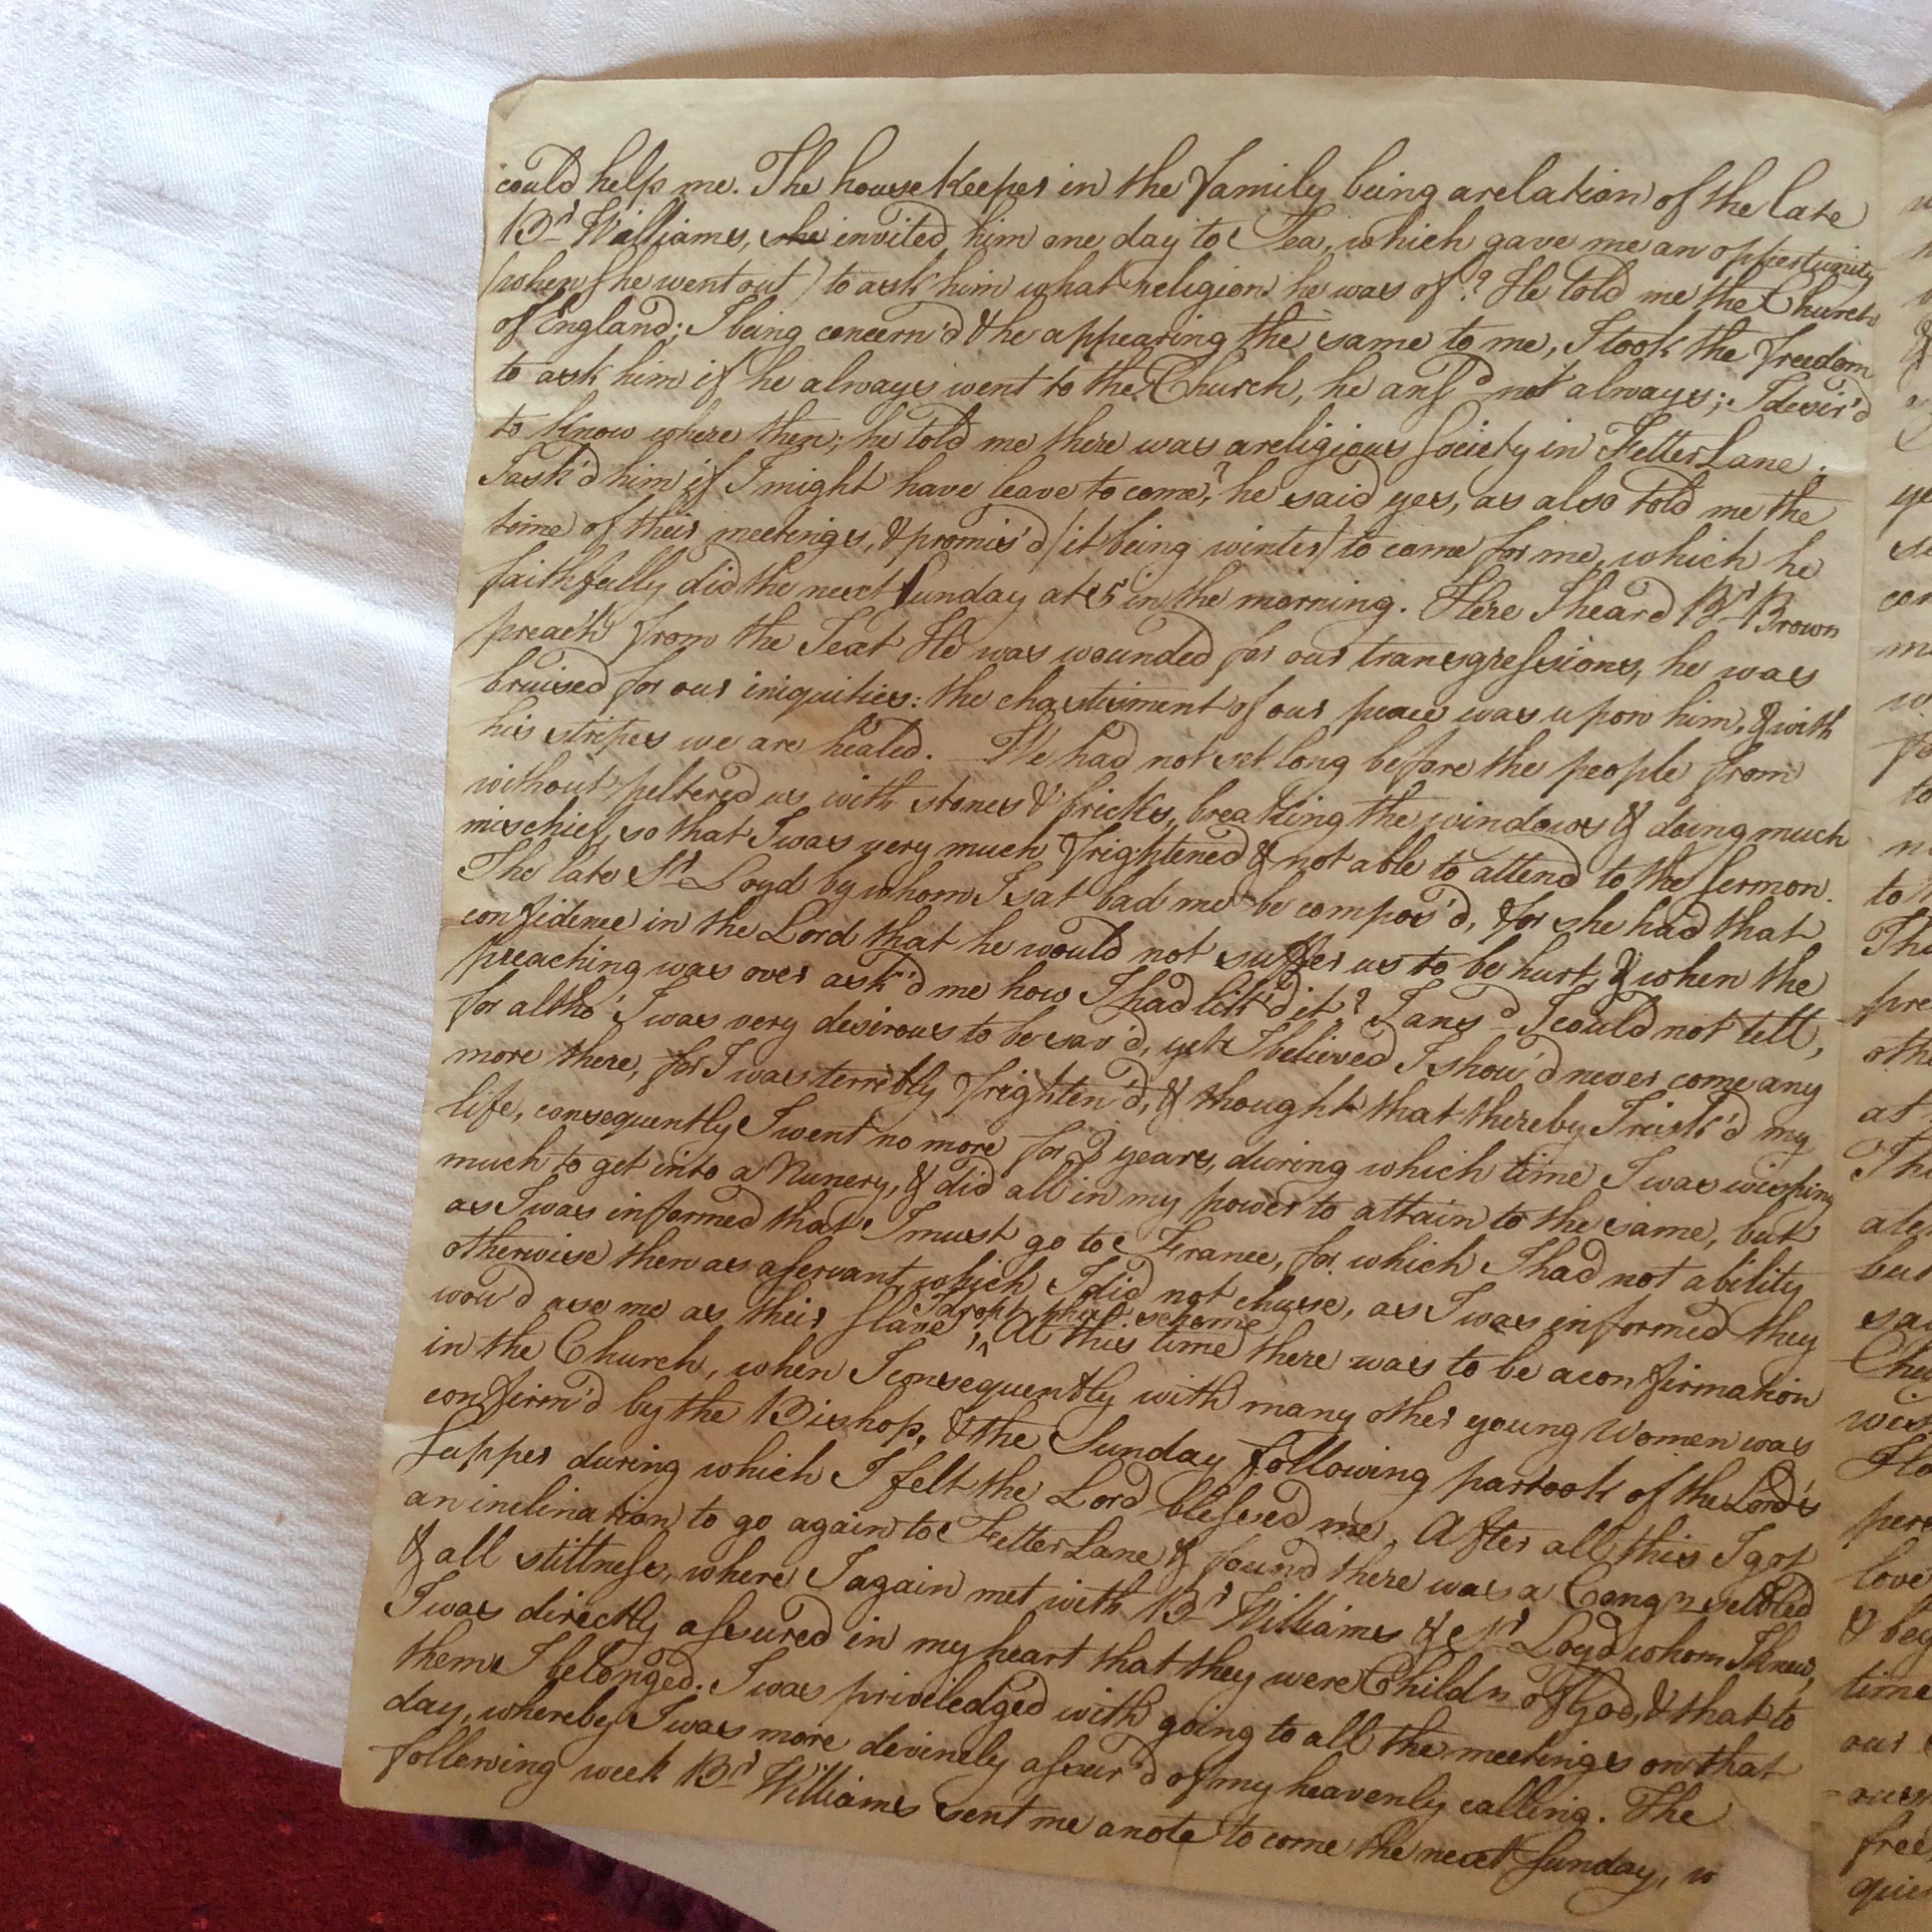 could help me. The houseKeeper in the family being a relation of the late
Br Williams, she invited him one day to Tea, which gave me an oppertunity
(when she went out) to ask him what religion he was of? He told me the Church
of England; I being concern'd & he appearing the same to me, I took the freedom
to ask him if he always went to the Church, he ansd not always; I desir'd
to know where then; he told me there was a religious Society in Fetter Lane.
I ask'd him if I might have leave to come? he said yes, as also told me the
time of their meetings, & promis'd (it being winter) to come for me, which he
faithfully did the next Sunday at 5 in the morning. Here I heard Br Brown
preach from the Text He was wounded for our transgressions, he was
bruised for our iniquities: the chastisment of our peace was upon him, & with
his stripes we are healed. — We had not set long before the people from
without peltered us with stones & bricks, breaking the windows & doing much
mischief, so that I was very much frightened & not able to attend to the Sermon.
The late Sr Loyd by whom I sat bad me be compos'd, for she had that
confidence in the Lord that he would not suffer us to be hurt, & when the
preaching was over ask'd me how I had lik'd it? I ansd I could not tell,
for altho' I was very desirous to be sav'd, yet I believed I shou'd never come any
more there, for I was terribly frighten'd, & thought that thereby I risk'd my
life, consequently I went no more for 2 years, during which time I was wishing
much to get into a Nunery, & did all in my power to attain to the same, but
as I was informed that I must go to France, for which I had not ability
otherwise then as a servant, which I did not chuse, as I was informed they
wou'd use me as their slave; ^ I dropt that scheme At this time there was to be a confirmation
in the Church, when I consequently with many other young Women was
confirm'd by the Bishop, & the Sunday following partook of the Lord's
Supper during which I felt the Lord blessed me. After all this I got
an inclination to go again to Fetter Lane & found there was a Congn settled
& all stillness, where I again met with Br Williams & Sr Loyd whom I knew,
I was directly assured in my heart that they were Childn of God, & that to
them I belonged. I was priviledged with going to all the meetings on that
day, whereby I was more divinely assur'd of my heavenly calling. The
following week Br Williams sent me a note to come the next Sunday, w